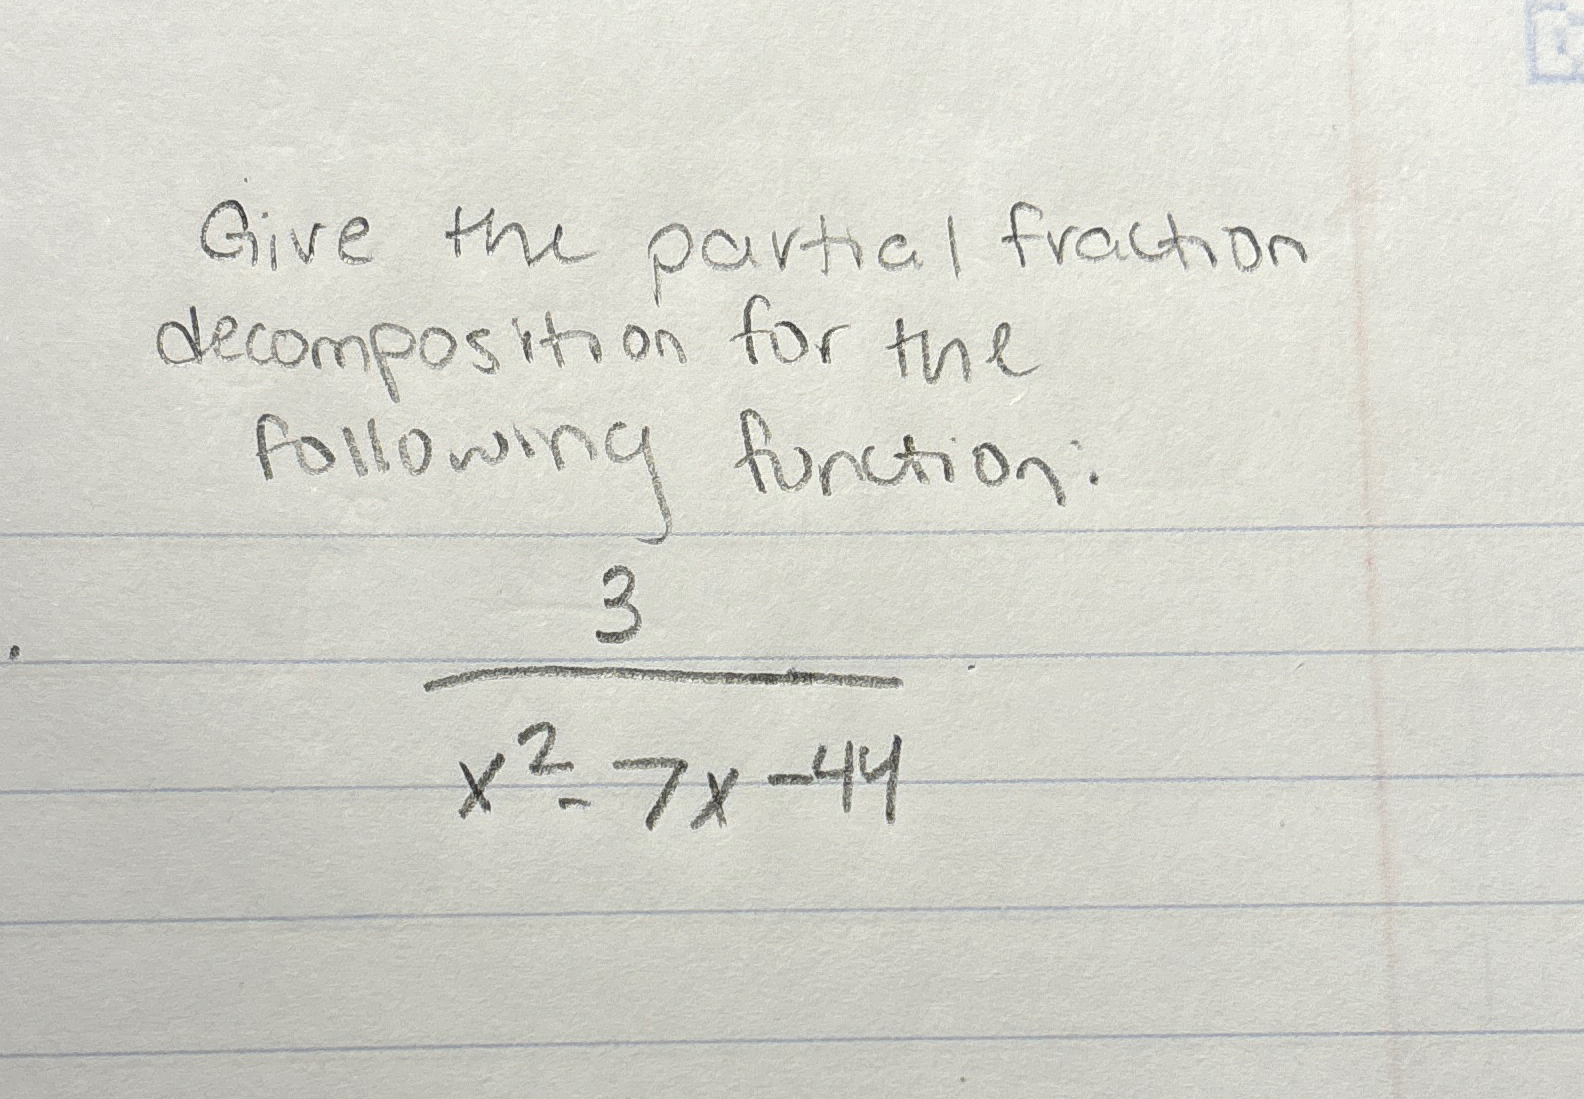 Give the partial fraction
decomposition for the
following function:
3
x² - 7x - 44